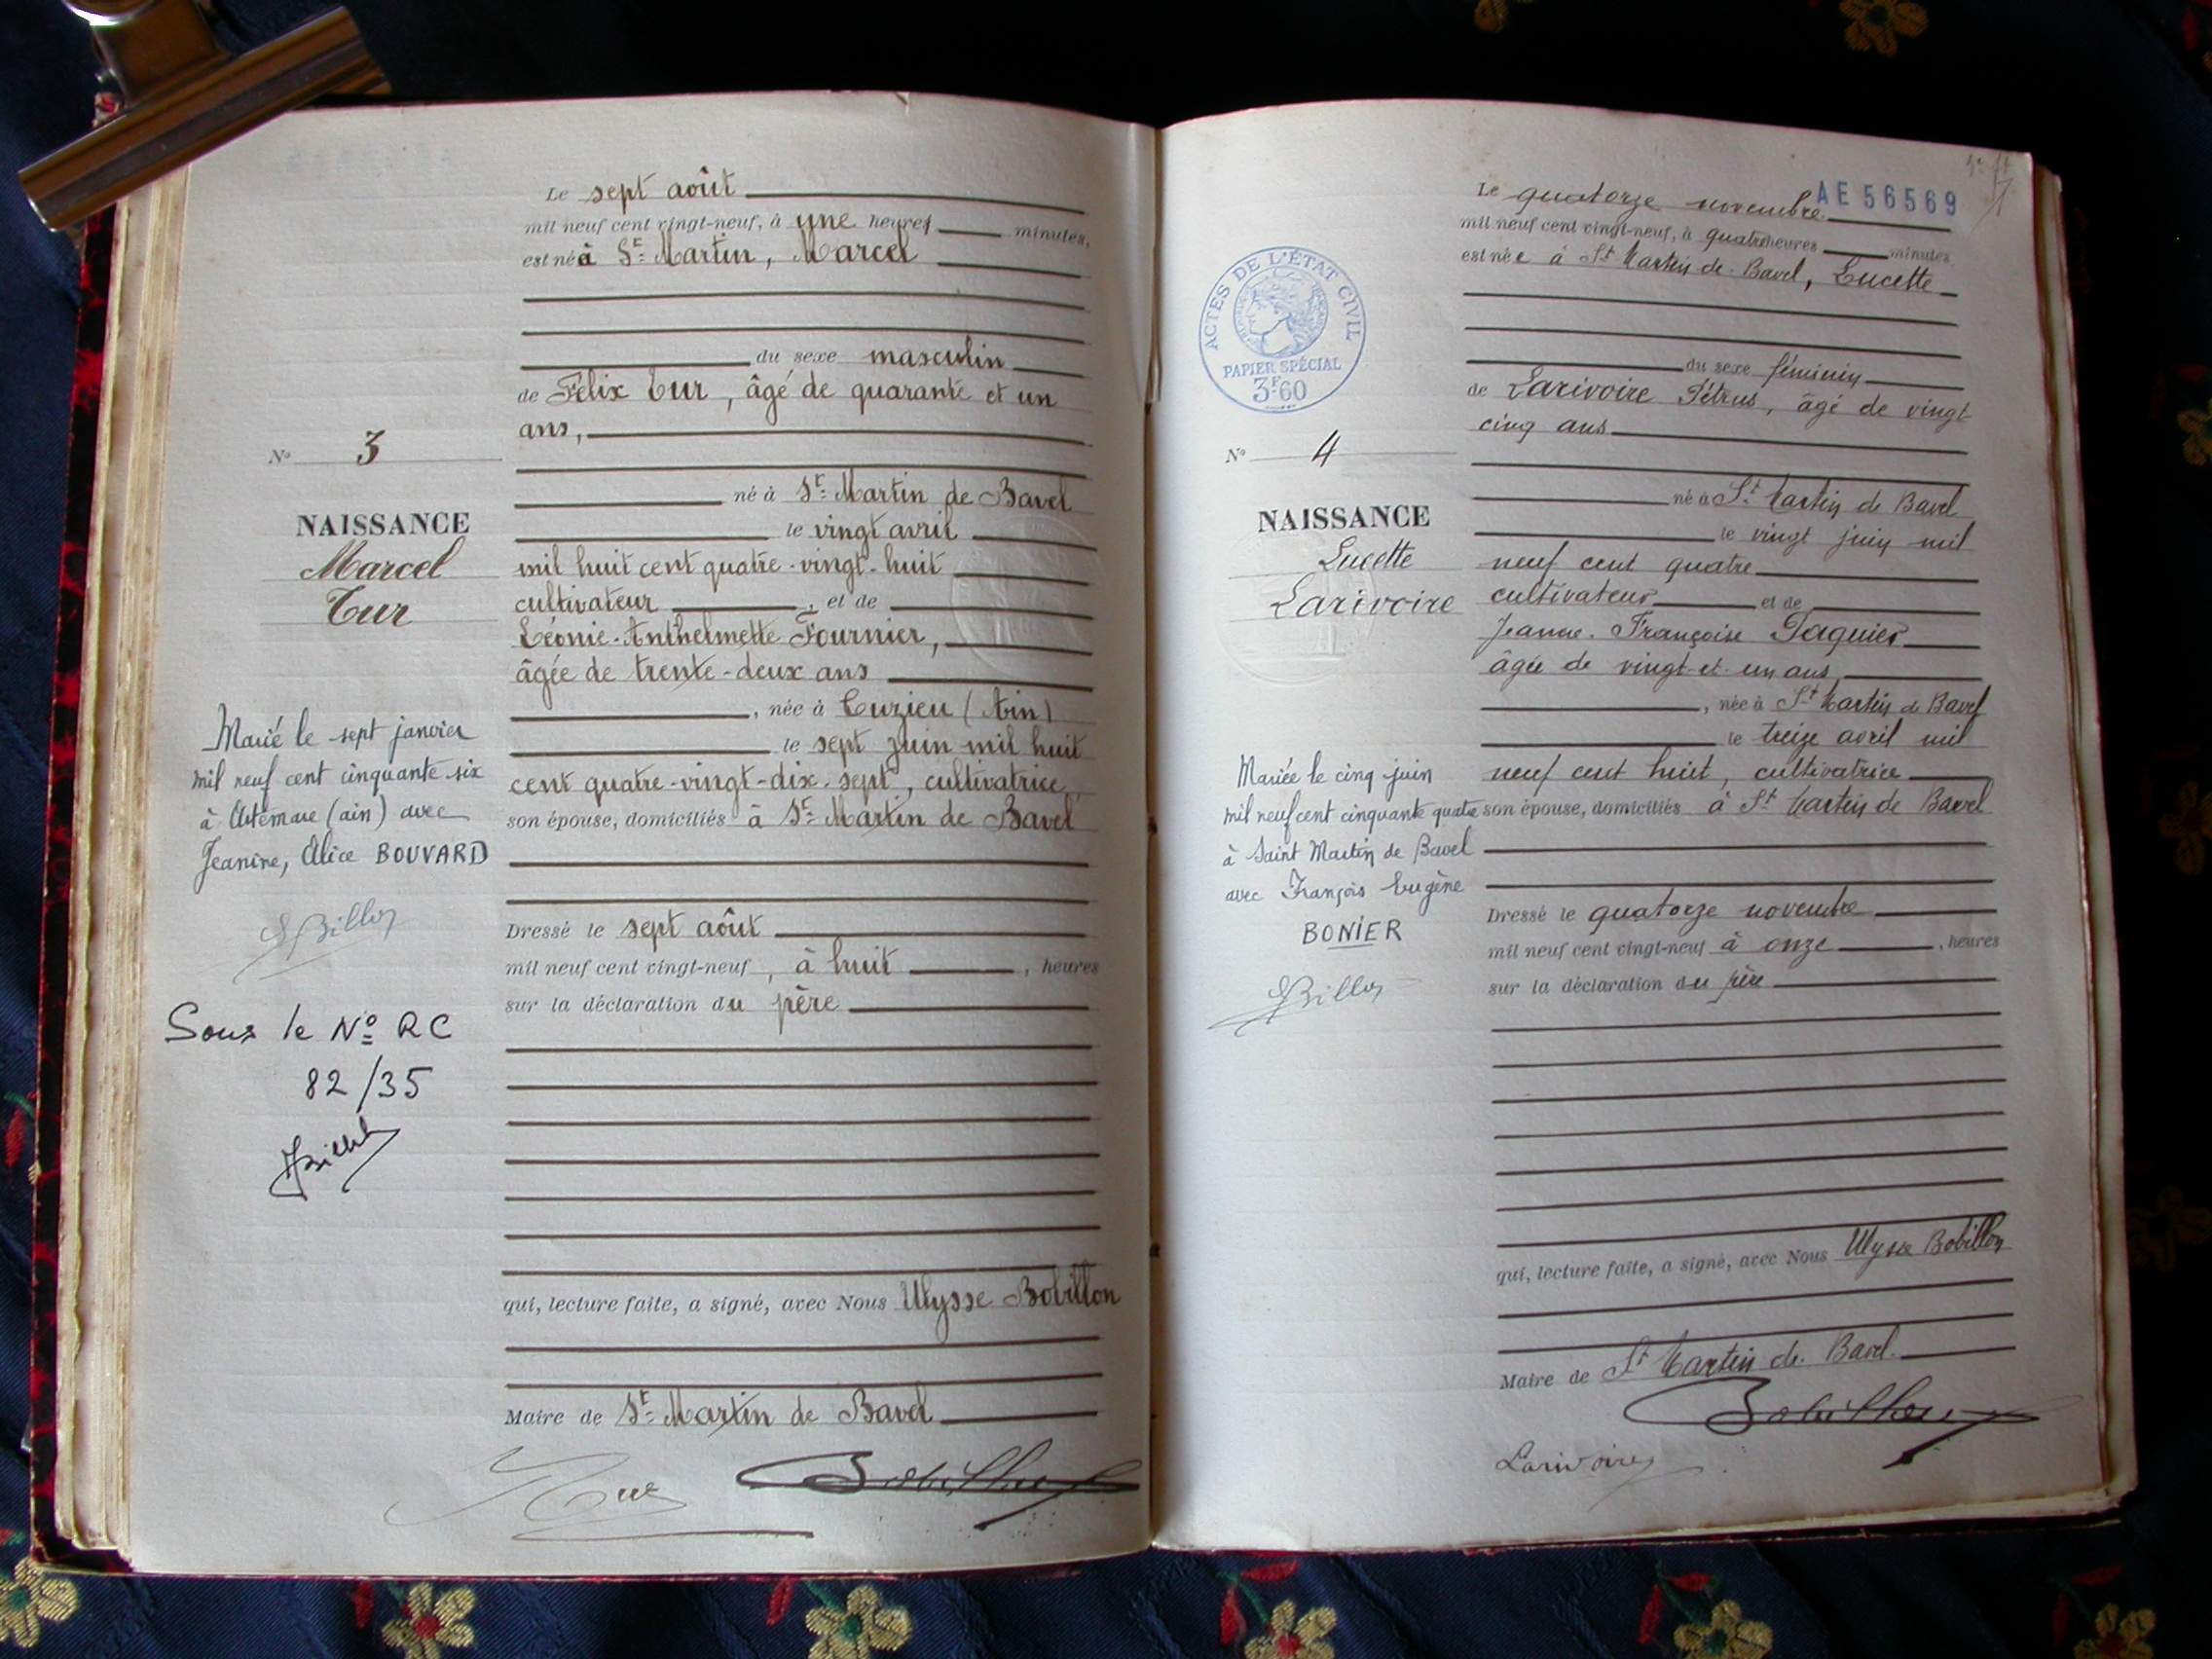 Le sept août
mil neuf cent vingt-neuf, à une heures minutes,
est né à St Martin, Marcel
du sexe masculin
de Félix Tur, âgé de quarante et un
ans,
né à St Martin de Bavel
le vingt avril
mil huit cent quatre-vingt-huit
cultivateur, et de
Léonie-Anthelmette Fournier,
âgée de trente-deux ans
, née à Cuzieu (Ain)
le sept juin mil huit
cent quatre-vingt-dix-sept, cultivatrice,
son épouse, domiciliés à St Martin de Bavel
Dressé le sept août
mil neuf cent vingt-neuf, à huit, heures
sur la déclaration du père
qui, lecture faite, a signé, avec Nous Ulysse Bobillon
Maire de St Martin de Bavel
Tur Bobillon
No 3
NAISSANCE
Marcel
Tur
Marié le sept janvier
mil neuf cent cinquante-six
à Artemare (ain) avec
Jeanine, Alice BOUVARD
Sous le No RC
82/35
AE 56569
Le quatorze novembre
mil neuf cent vingt-neuf, à quatre heures minutes
est née à St Martin-de-Bavel, Lucette
du sexe féminin
de Larivoire Pétrus, âgé de vingt
cinq ans
né à St Martin de Bavel
le vingt juin mil
neuf cent quatre
cultivateur et de
Jeanne-Françoise Paquier
âgée de vingt-et-un ans,
, née à St Martin de Bavel
le treize avril mil
neuf cent huit, cultivatrice
son épouse, domiciliés à St Martin de Bavel
Dressé le quatorze novembre
mil neuf cent vingt-neuf à onze, heures
sur la déclaration du père
qui, lecture faite, a signé, avec Nous Ulysse Bobillon
Maire de St Martin de Bavel
Bobillon
Larivoire
ACTES DE L'ÉTAT CIVIL
PAPIER SPÉCIAL
3F60
No 4
NAISSANCE
Lucette
Larivoire
Mariée le cinq juin
mil neuf cent cinquante quatre
à Saint Martin de Bavel
avec François Eugène
BONIER